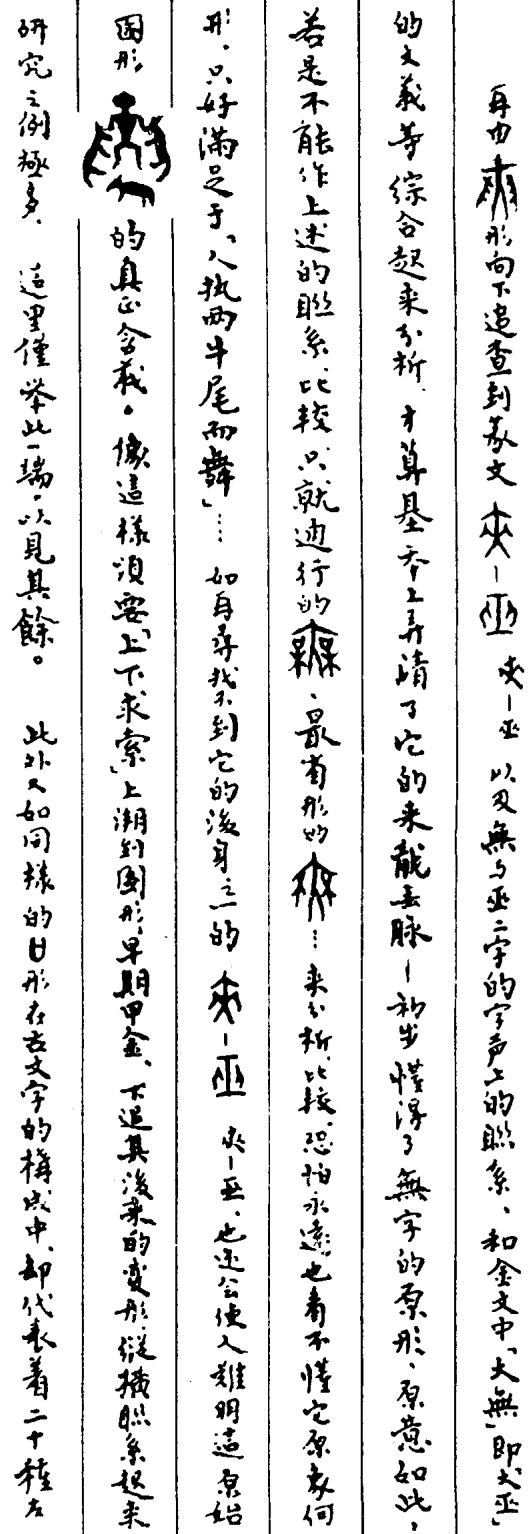 再由形向下追查到篆文夾—巫 夾—巫 以及無与巫二字的字声上的聯系、和金文中「大無」即大巫」
的文義等綜合起来分析．才算基本上弄清了它的来龍去脉—初步懂得了無字的原形、原意如此，
若是不能作上述的聯系、比較、只就通行的、最省形的…来分析、比較、恐怕永遠也看不懂它原象何
形．只好滿足于「人执两牛尾而舞」…如再尋找不到它的後身之一的夾—巫 夾—巫、也还会使人難明這原始
圖形的真正含義。像這樣須要「上下求索」上溯到圖形、早期甲金、下追其後来的变形縱橫聯系起来
研究之例極多．這里僅举此一端．以見其餘。 此外又如同樣的日形在古文字的構成中、却代表着二十種左